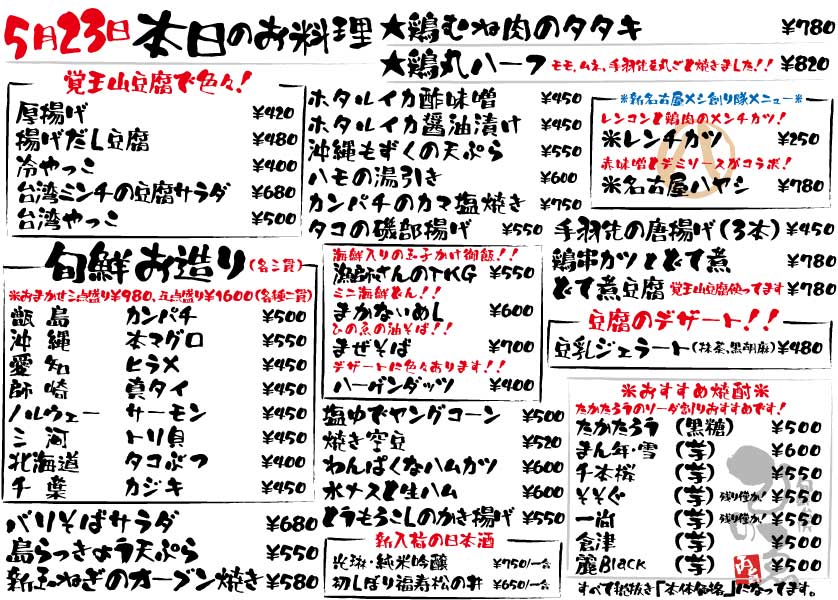 5月23日 本日のお料理
★鶏むね肉のタタキ ¥780
★鶏丸ハーフ モモ、ムネ、手羽先を丸ごと焼きました!! ¥820
覚王山豆腐で色々!
厚揚げ ¥420
揚げだし豆腐 ¥480
冷やっこ ¥400
台湾ミンチの豆腐サラダ ¥680
台湾やっこ ¥500
ホタルイカ酢味噌 ¥450
ホタルイカ醤油漬け ¥450
沖縄もずくの天ぷら ¥550
ハモの湯引き ¥600
カンパチのカマ塩焼き ¥750
タコの磯部揚げ ¥550
※新名古屋メシ創り隊メニュー※
レンコンと鶏肉のメンチカツ!
※レンチカツ ¥250
赤味噌とデミソースがコラボ!
※名古屋ハヤシ ¥780
手羽先の唐揚げ(3本) ¥450
鶏串カツとどて煮 ¥780
どて煮豆腐 覚王山豆腐使ってます ¥780
旬鮮お造り(各三貫)
※おまかせ三点盛り¥980、五点盛り¥1600(各種二貫)
甑島 カンパチ ¥500
沖縄 本マグロ ¥550
愛知 ヒラメ ¥450
師崎 真タイ ¥450
ノルウェー サーモン ¥450
三河 トリ貝 ¥450
北海道 タコぶつ ¥400
千葉 カジキ ¥450
海鮮入りの玉子かけ御飯!!
漁師さんのTKG ¥550
ミニ海鮮どん!!
まかないめし ¥600
ひの魚の油そば!!
まぜそば ¥700
デザートに色々あります!!
ハーゲンダッツ ¥400
豆腐のデザート!!
豆乳ジェラート(抹茶、黒胡麻) ¥480
バリそばサラダ ¥680
島らっきょう天ぷら ¥550
新玉ねぎのオーブン焼き ¥580
塩ゆでヤングコーン ¥500
焼き空豆 ¥520
わんぱくなハムカツ ¥600
水ナスと生ハム ¥600
とうもろこしのかき揚げ ¥550
新入荷の日本酒
光琳・純米吟醸 ¥750/一合
初しぼり福寿松の井 ¥650/一合
※おすすめ焼酎※
たかたろうのソーダ割りおすすめです!
たかたろう (黒糖) ¥500
まん年・雪 (芋) ¥600
千本桜 (芋) ¥550
そそぐ (芋) 残り僅か! ¥550
一尚 (芋) 残り僅か! ¥550
倉津 (芋) ¥500
麗Black (芋) ¥500
すべて税抜き「本体価格」になってます。